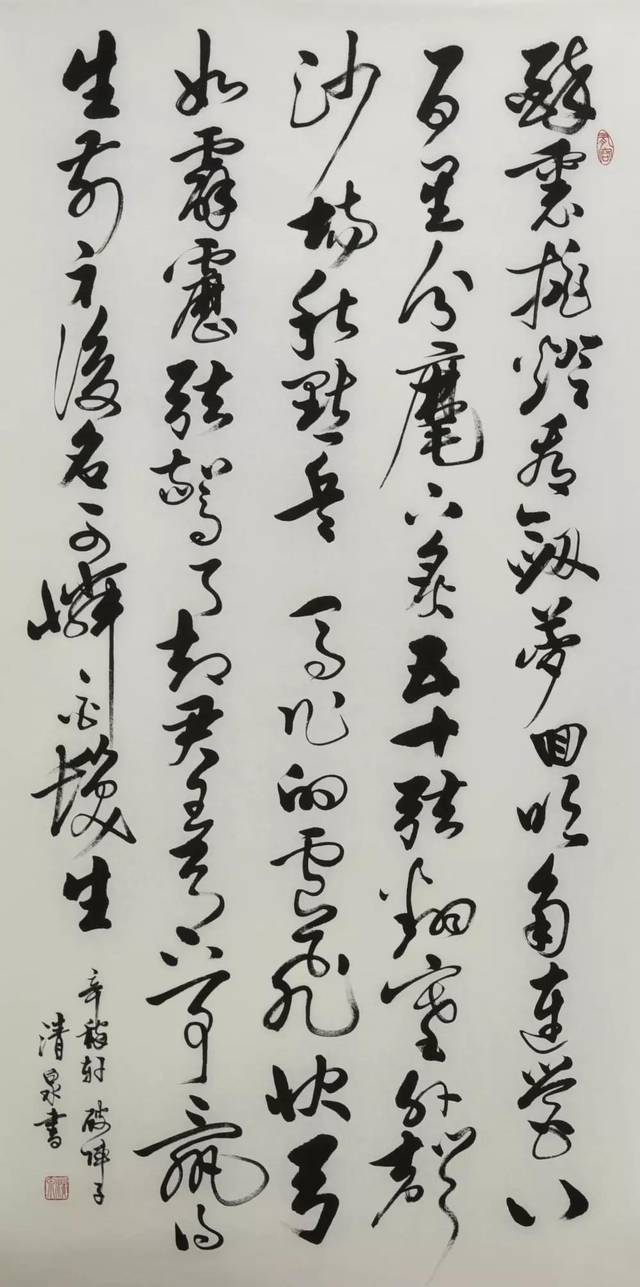 醉裏挑燈看劍夢回吹角連營八
百里分麾下炙五十弦翻塞外聲
沙場秋點兵 馬作的盧飛快弓
如霹靂弦驚了却君王天下事贏得
生前身後名可憐白髮生
辛稼軒 破陣子
清泉書